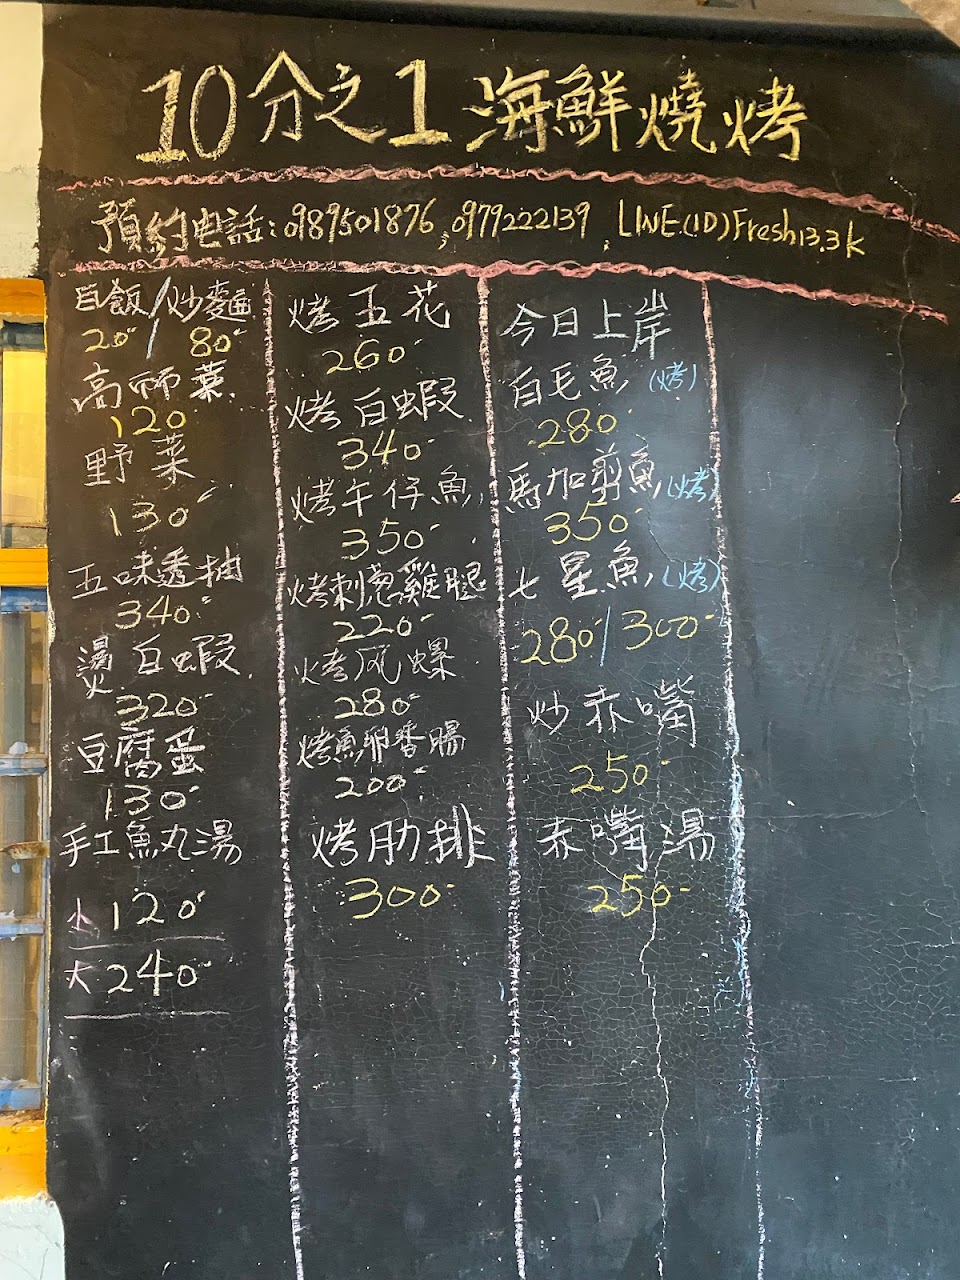 10分之1海鮮燒烤
預約电話:0989501876,0979222139, LINE(ID)Fresh13.3k
白飯/炒麵
20/80
高师菜
120
野菜
130
五味透抽
340
燙白蝦
320
豆腐蛋
130
手工魚丸湯
小120
大240
烤五花
260
烤白蝦
340
烤午仔魚
350
烤刺蔥雞腿
220
烤风螺
280
烤魚卵香腸
200
烤肋排
300
今日上岸
白毛魚(烤)
280
馬加剪魚(烤)
350
七星魚(烤)
280/300
炒赤嘴
250
赤嘴湯
250